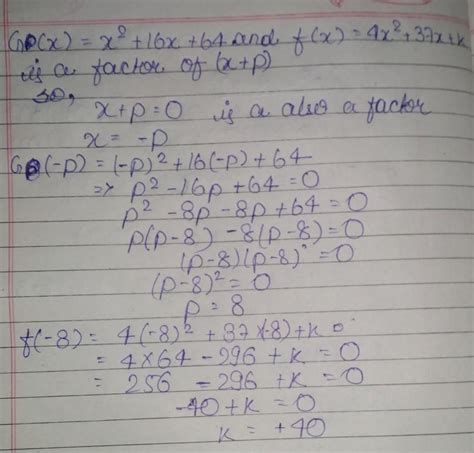 G(x) = x² + 16x + 64 and f(x) = 4x² + 37x + k
is a factor of (x+p)
so,
x + p = 0 is a also a factor
x = -p
G(-p) = (-p)² + 16(-p) + 64
=> p² - 16p + 64 = 0
p² - 8p - 8p + 64 = 0
p(p-8) - 8(p-8) = 0
(p-8)(p-8) = 0
(p-8)² = 0
p = 8
f(-8) = 4(-8)² + 37×(-8) + k = 0
= 4×64 - 296 + k = 0
= 256 - 296 + k = 0
-40 + k = 0
k = +40